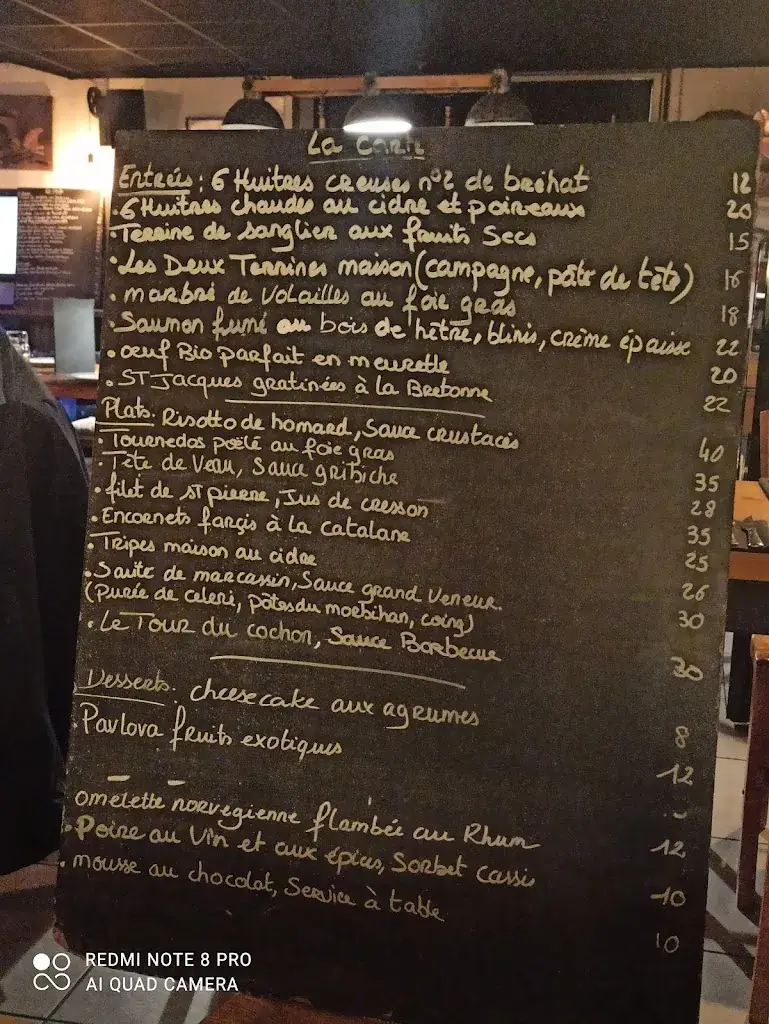 La Carte
Entrées : 6 Huitres creuses n°2 de bréhat 12
· 6 Huitres chaudes au cidre et poireaux 20
· Terrine de sanglier aux fruits Secs 15
· Les Deux Terrines maison (campagne, pâté de tête) 16
· marbré de Volailles au foie gras 18
· Saumon fumé au bois de hêtre, blinis, crème épaisse 22
· œuf Bio parfait en meurette 20
· ST Jacques gratinées à la Bretonne 22
Plats : Risotto de homard, Sauce crustacés 40
· Tournedos poêlé au foie gras 35
· Tête de Veau, Sauce gribiche 28
· filet de ST pierre, Jus de cresson 35
· Encornets farçis à la catalane 25
· Tripes maison au cidre 26
· Sauté de marcassin, Sauce grand Veneur. 30
(Purée de celeri, pâtes du morbihan, coing)
· Le Tour du cochon, Sauce Barbecue 30
Desserts : cheesecake aux agrumes 8
· Pavlova fruits exotiques 12
omelette norvegienne flambée au Rhum 12
· Poire au Vin et aux épices, Sorbet cassis 10
· mousse au chocolat, Service à table 10
REDMI NOTE 8 PRO
AI QUAD CAMERA